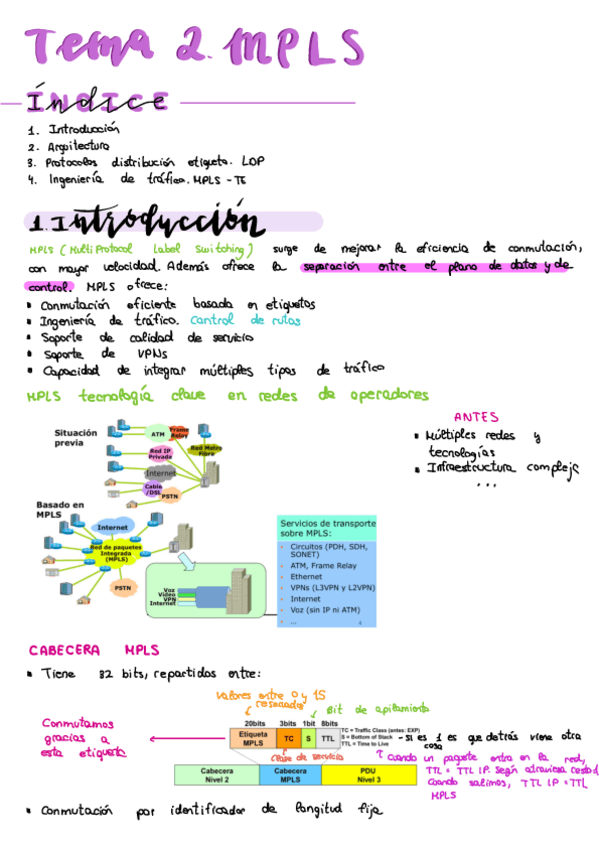 Tema 2. MPLS
ÍNDICE
1. Introducción
2. Arquitectura
3. Protocolos distribución etiqueta. LDP
4. Ingeniería de tráfico. MPLS - TE
1. Introducción
MPLS (MultiProtocol Label Switching) surge de mejorar la eficiencia de conmutación,
con mayor velocidad. Además ofrece la separación entre el plano de datos y de
control. MPLS ofrece:
Conmutación eficiente basada en etiquetas
Ingeniería de tráfico. Control de rutas
Soporte de calidad de servicio
Soporte de VPNs
Capacidad de integrar múltiples tipos de tráfico
MPLS tecnología clave en redes de operadores
ANTES
Múltiples redes y
tecnologías
Infraestructura compleja
...
Situación
previa
ATM
Frame
Relay
Red IP
Privada
Red Metro
Fibra
Internet
Cable
/DSL
PSTN
Basado en
MPLS
Internet
Red de paquetes
Integrada
(MPLS)
PSTN
Voz
Video
VPN
Internet
Servicios de transporte
sobre MPLS:
Circuitos (PDH, SDH,
SONET)
ATM, Frame Relay
Ethernet
VPNs (L3VPN y L2VPN)
Internet
Voz (sin IP ni ATM)
...
CABECERA MPLS
Tiene 32 bits, repartidos entre:
valores entre 0 y 15
reservados
Bit de apilamiento
Conmutamos
gracias a
esta etiqueta
20bits 3bits 1bit 8bits
Etiqueta
MPLS
TC S TTL
TC = Traffic Class (antes: EXP)
S = Bottom of Stack
TTL = Time to Live
- si es 1 es que detrás viene otra
cosa
clase de servicio
Cuando un paquete entra en la red,
TTL = TTL IP. Según atraviesa
Cuando salimos, TTL IP = TTL
MPLS
Cabecera
Nivel 2
Cabecera
MPLS
PDU
Nivel 3
Conmutación por identificador de longitud fija